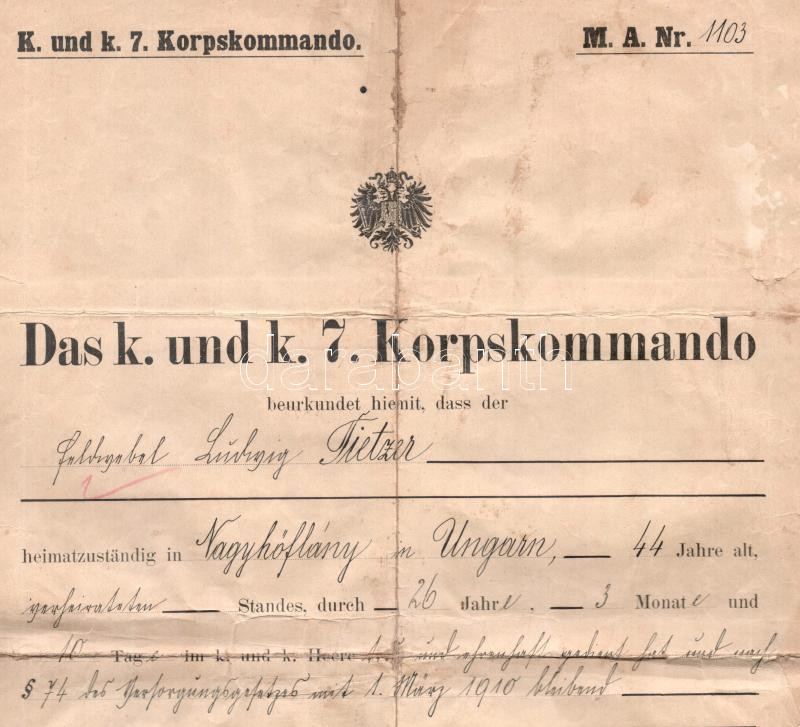 K. und k. 7. Korpskommando.
M. A. Nr. 1103
Das k. und k. 7. Korpskommando
darabanth
beurkundet hiemit, dass der
Feldwebel Ludwig Tietzer
heimatzuständig in Nagyhőflány in Ungarn, 44 Jahre alt,
verheirateten Standes, durch 26 Jahre, 3 Monate und
10 Tage im k. und k. Heere treu und ehrenhaft gedient hat und nach
§ 74 des Versorgungsgesetzes mit 1. März 1910 bleibend